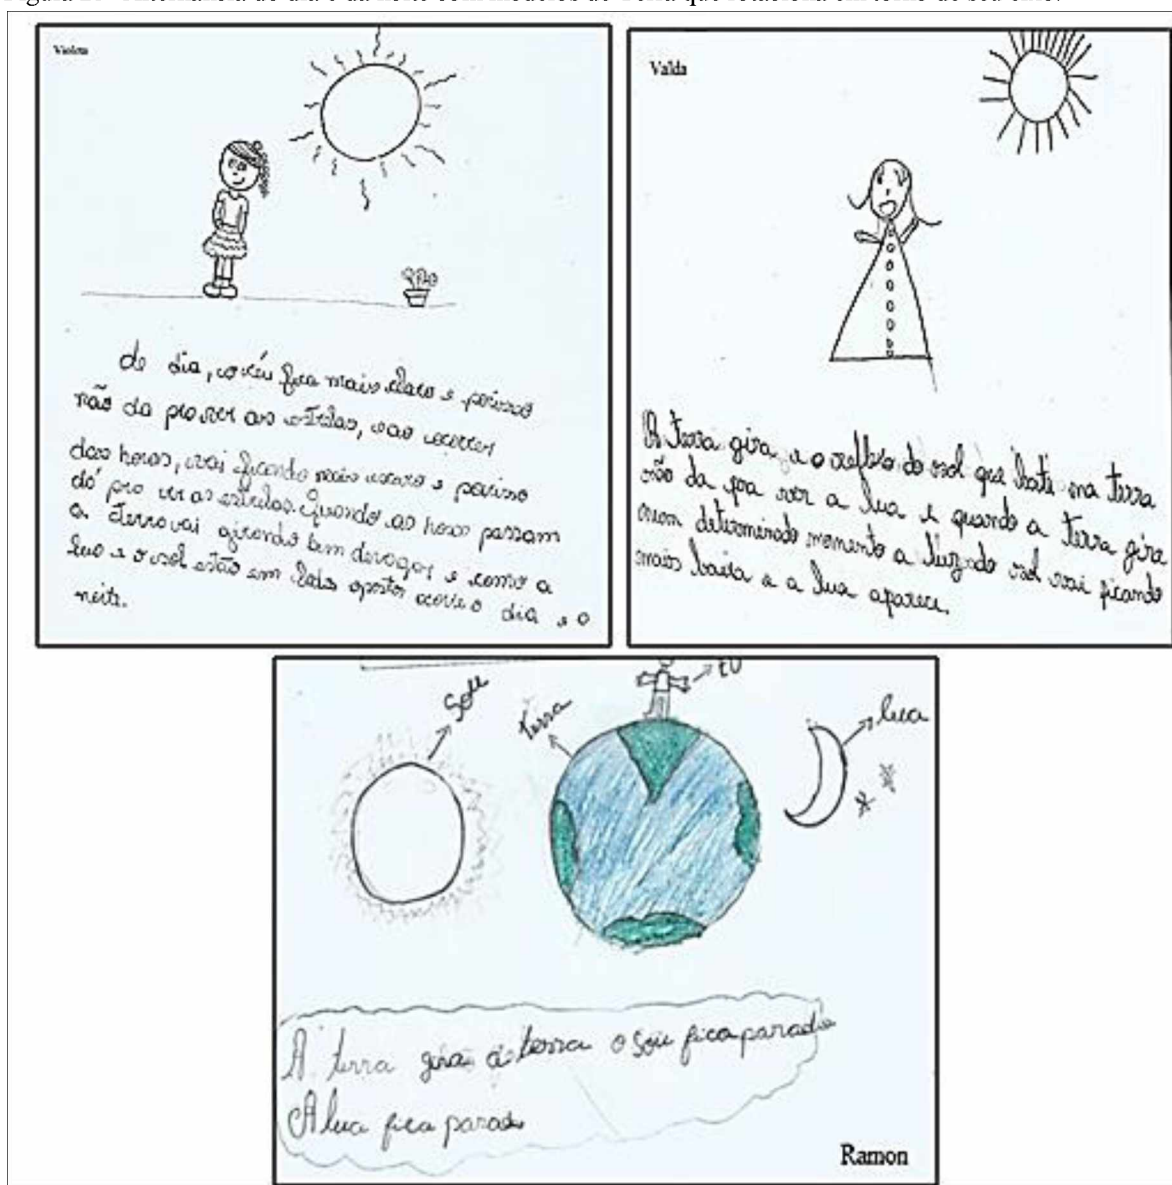 Violeta
de dia, o céu fica mais claro e porisso
não da pro ver as estrelas, ao
das horas, vai ficando mais escuro e porisso
dá pro ver as estrelas. Quando as horas passam
a terra vai girando bem devagar e como a
lua e o sol estão em lados opostos ocorre o dia e a
noite.
Valda
A terra gira e o reflexo do sol que bate na terra
não da pra ver a lua e quando a terra gira
num determinado momento a luz do sol vai ficando
mais baixa e a lua aparece.
EU
Sou
terra
lua
A terra gira terra o Sou fica parado
A lua fica parado
Ramon